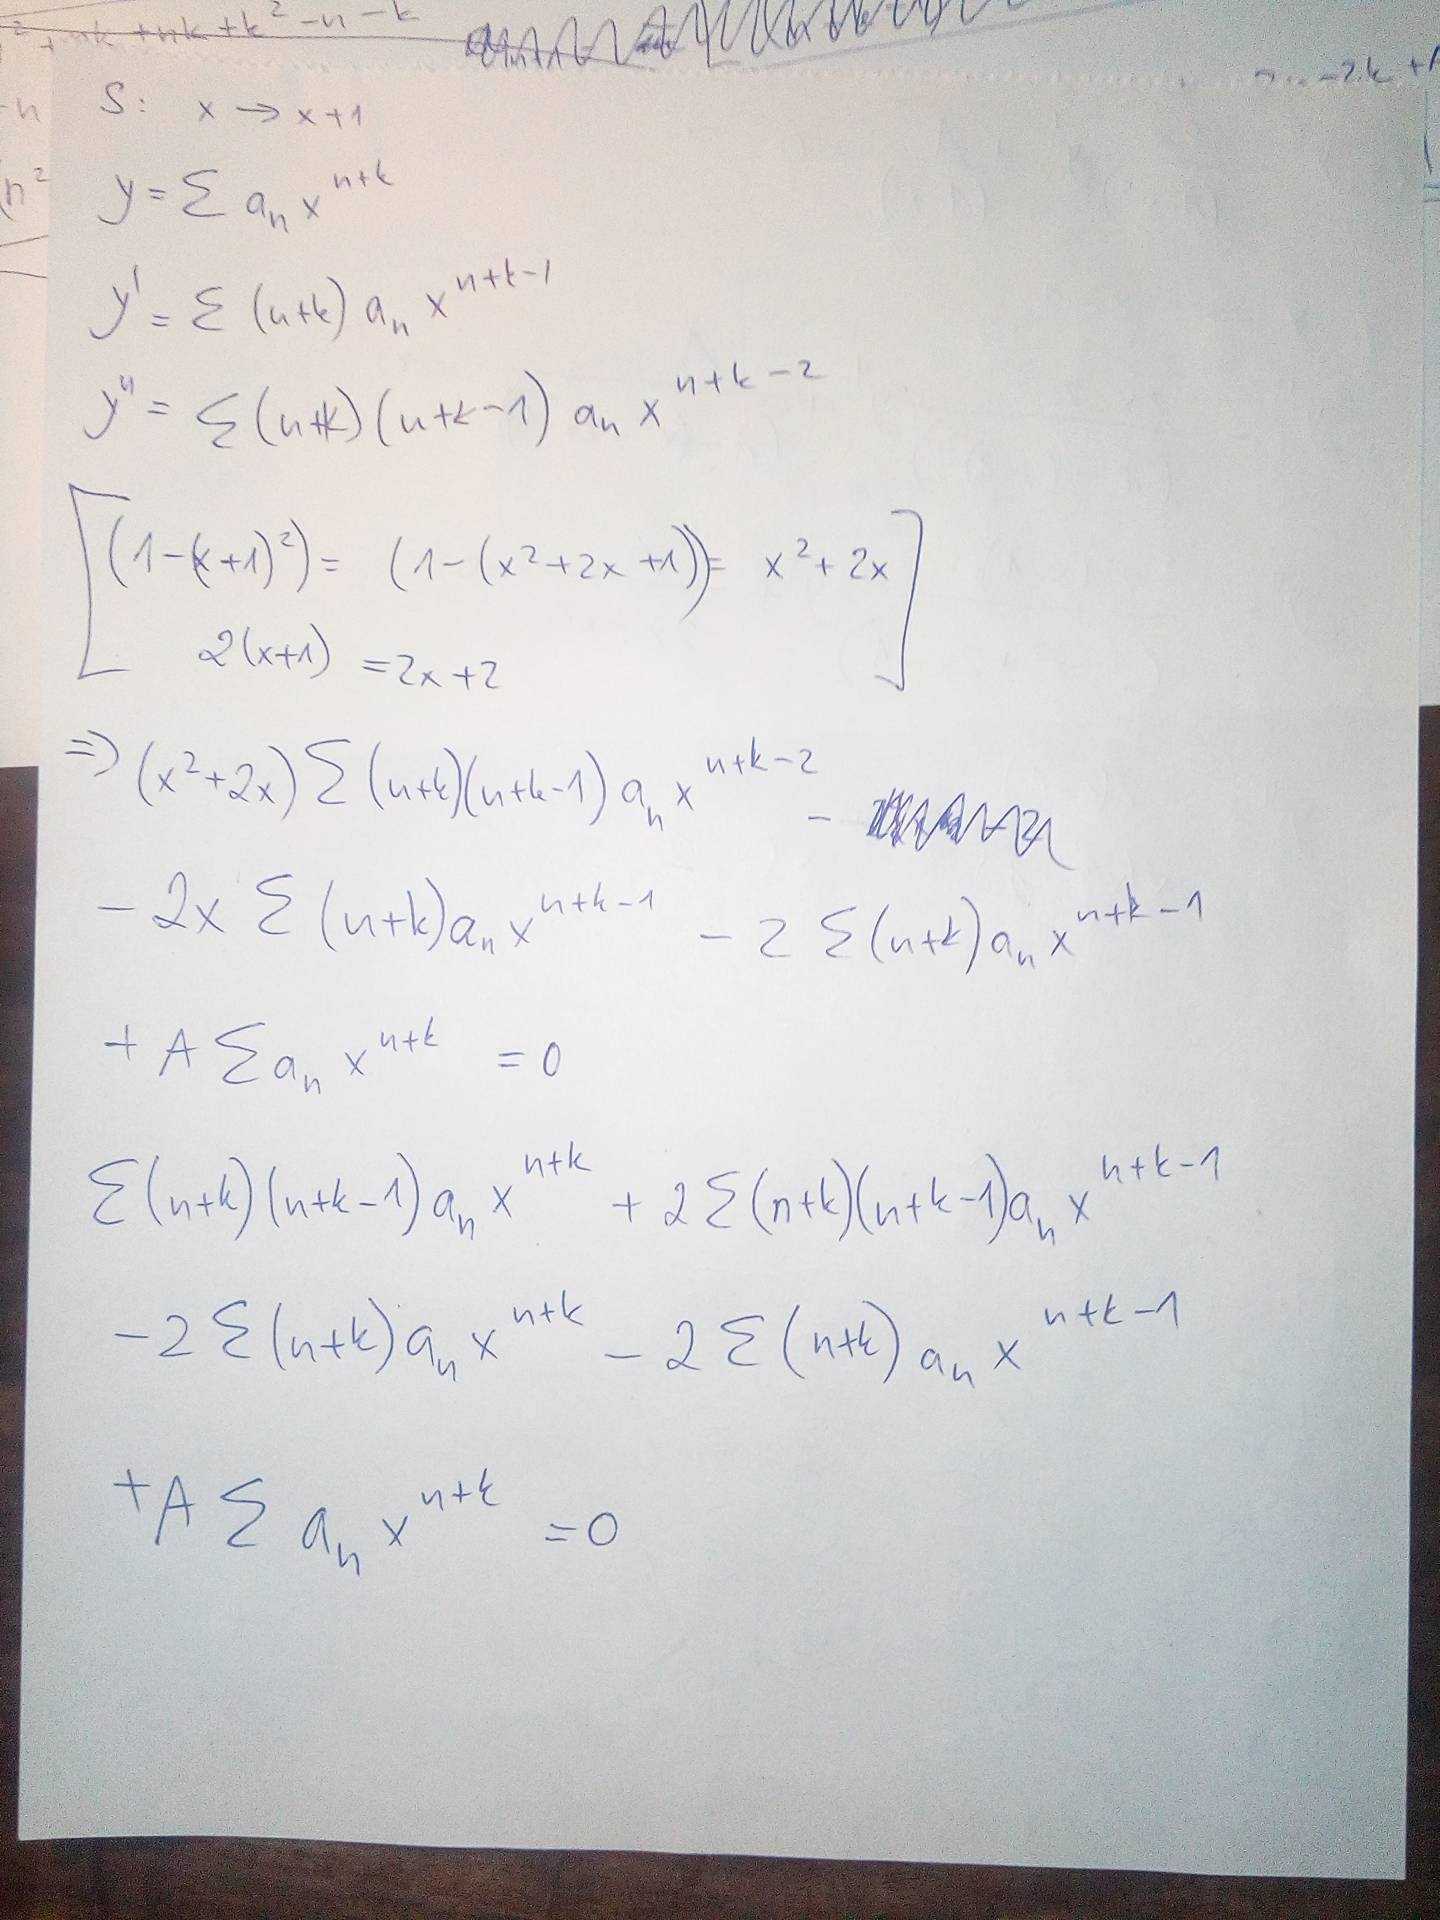 ² + nk + nk + k² - n - k
- 2k +
- n
(n²
S: x → x+1
y = Σ aₙ x^(n+k)
y' = Σ (n+k) aₙ x^(n+k-1)
y'' = Σ (n+k)(n+k-1) aₙ x^(n+k-2)
[(1-(x+1)²) = (1-(x²+2x+1)) = x²+2x
2(x+1) = 2x+2]
⇒ (x²+2x) Σ (n+k)(n+k-1) aₙ x^(n+k-2) -
- 2x Σ (n+k) aₙ x^(n+k-1) - 2 Σ (n+k) aₙ x^(n+k-1)
+ A Σ aₙ x^(n+k) = 0
Σ (n+k)(n+k-1) aₙ x^(n+k) + 2 Σ (n+k)(n+k-1) aₙ x^(n+k-1)
- 2 Σ (n+k) aₙ x^(n+k) - 2 Σ (n+k) aₙ x^(n+k-1)
+ A Σ aₙ x^(n+k) = 0